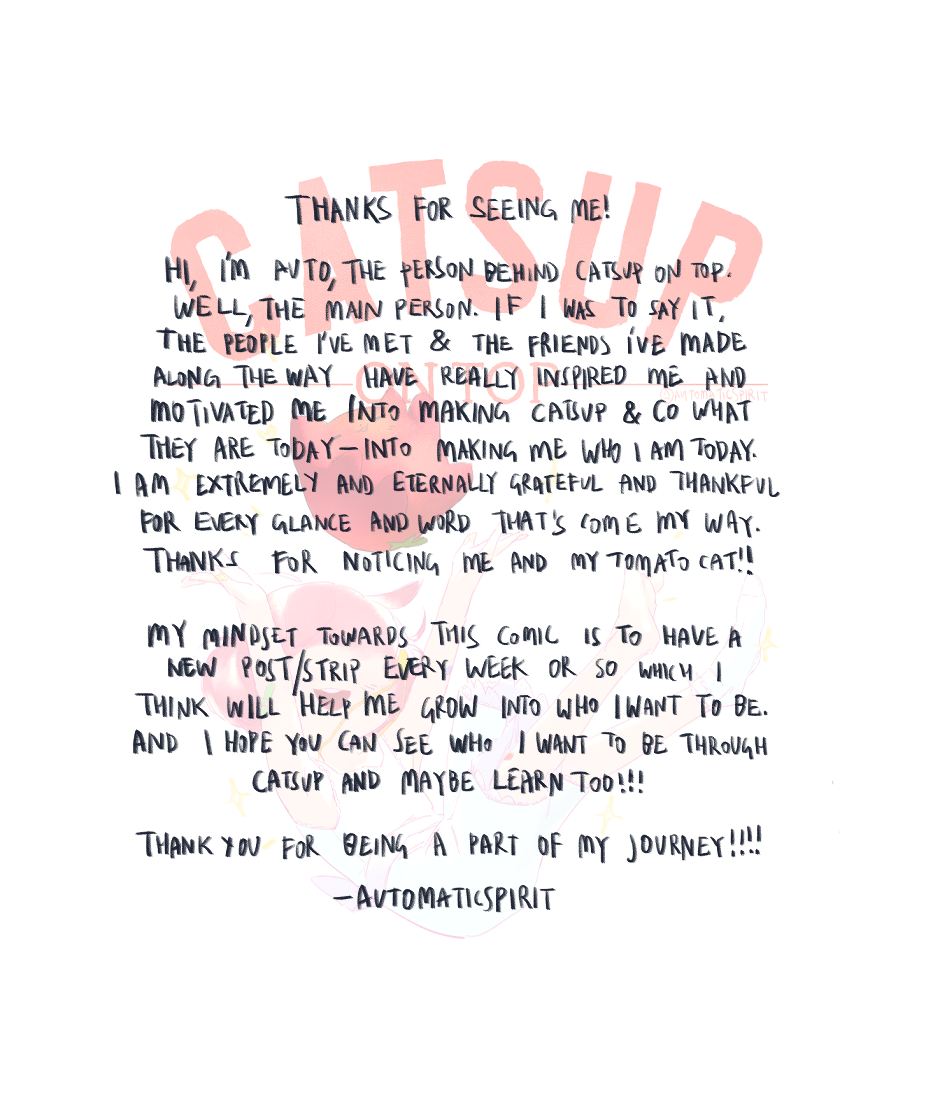 CATSUP
ON TOP
@AUTOMATICSPIRIT
THANKS FOR SEEING ME!
HI, I'M AUTO, THE PERSON BEHIND CATSUP ON TOP.
WELL, THE MAIN PERSON. IF I WAS TO SAY IT,
THE PEOPLE I'VE MET & THE FRIENDS I'VE MADE
ALONG THE WAY HAVE REALLY INSPIRED ME AND
MOTIVATED ME INTO MAKING CATSUP & CO WHAT
THEY ARE TODAY—INTO MAKING ME WHO I AM TODAY.
I AM EXTREMELY AND ETERNALLY GRATEFUL AND THANKFUL
FOR EVERY GLANCE AND WORD THAT'S COME MY WAY.
THANKS FOR NOTICING ME AND MY TOMATO CAT!!
MY MINDSET TOWARDS THIS COMIC IS TO HAVE A
NEW POST/STRIP EVERY WEEK OR SO WHICH I
THINK WILL HELP ME GROW INTO WHO I WANT TO BE.
AND I HOPE YOU CAN SEE WHO I WANT TO BE THROUGH
CATSUP AND MAYBE LEARN TOO!!!
THANK YOU FOR BEING A PART OF MY JOURNEY!!!!
—AUTOMATICSPIRIT